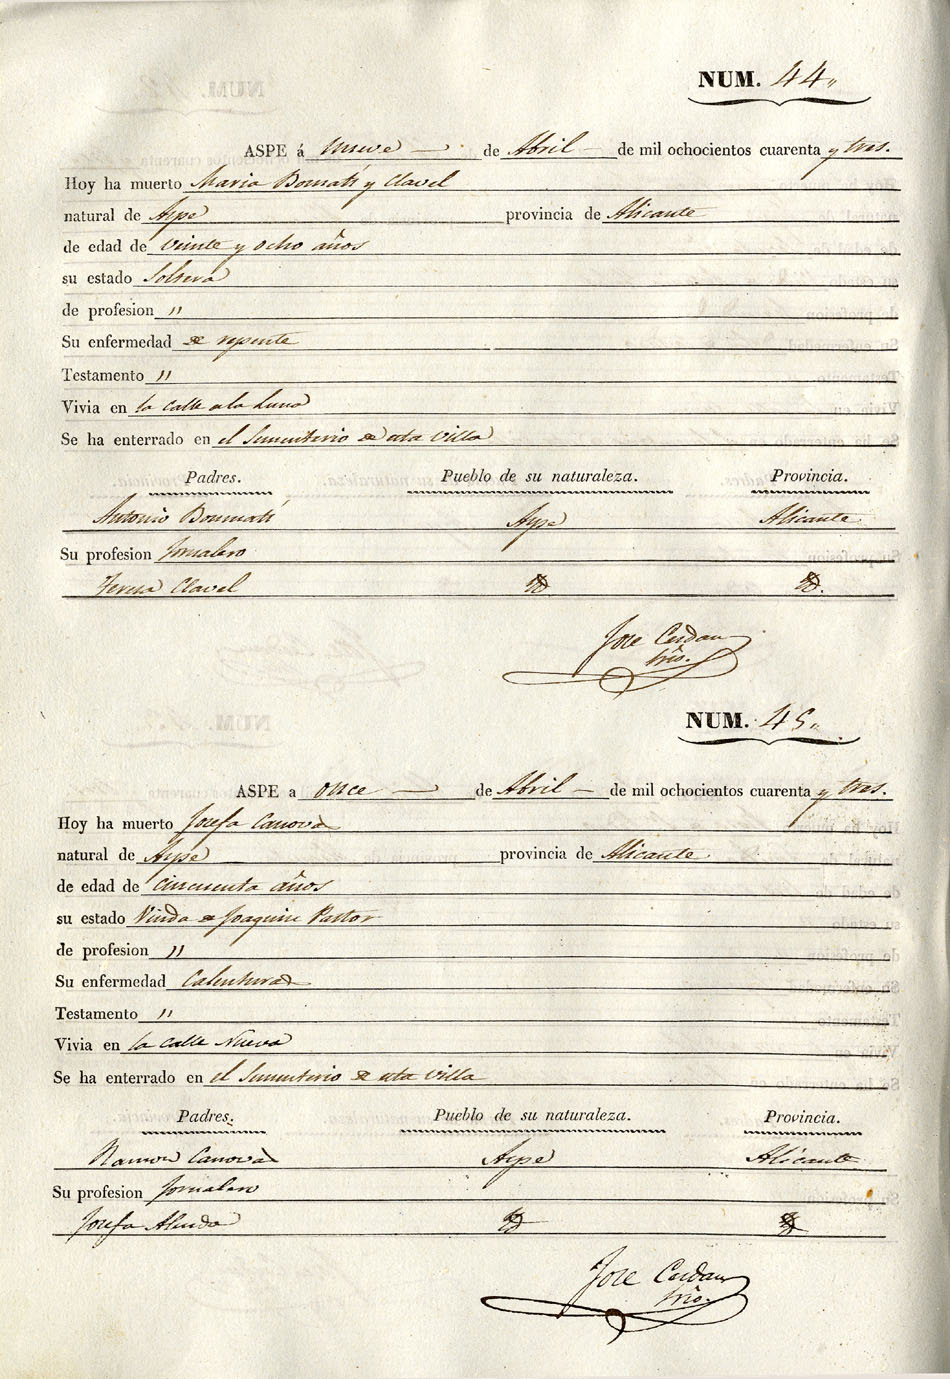 NUM. 44,,
ASPE á nueve de Abril de mil ochocientos cuarenta y tres.
Hoy ha muerto Maria Bonmatí y Clavel
natural de Aspe provincia de Alicante
de edad de veinte y ocho años
su estado Soltera
de profesion ,,
Su enfermedad de repente
Testamento ,,
Vivia en la calle de la Luna
Se ha enterrado en el Sementerio de esta Villa
Padres. Pueblo de su naturaleza. Provincia.
Antonio Bonmatí Aspe Alicante
Su profesion Jornalero
Teresa Clavel
Jose Cerdan
Srio.
NUM. 45,,
ASPE a once de Abril de mil ochocientos cuarenta y tres.
Hoy ha muerto Josefa Canovas
natural de Aspe provincia de Alicante
de edad de cincuenta años
su estado Viuda de Joaquin Pastor
de profesion ,,
Su enfermedad Calenturas
Testamento ,,
Vivia en la calle Nueva
Se ha enterrado en el Sementerio de esta Villa
Padres. Pueblo de su naturaleza. Provincia.
Ramon Canovas Aspe Alicante
Su profesion Jornalero
Josefa
Jose Cerdan
Srio.